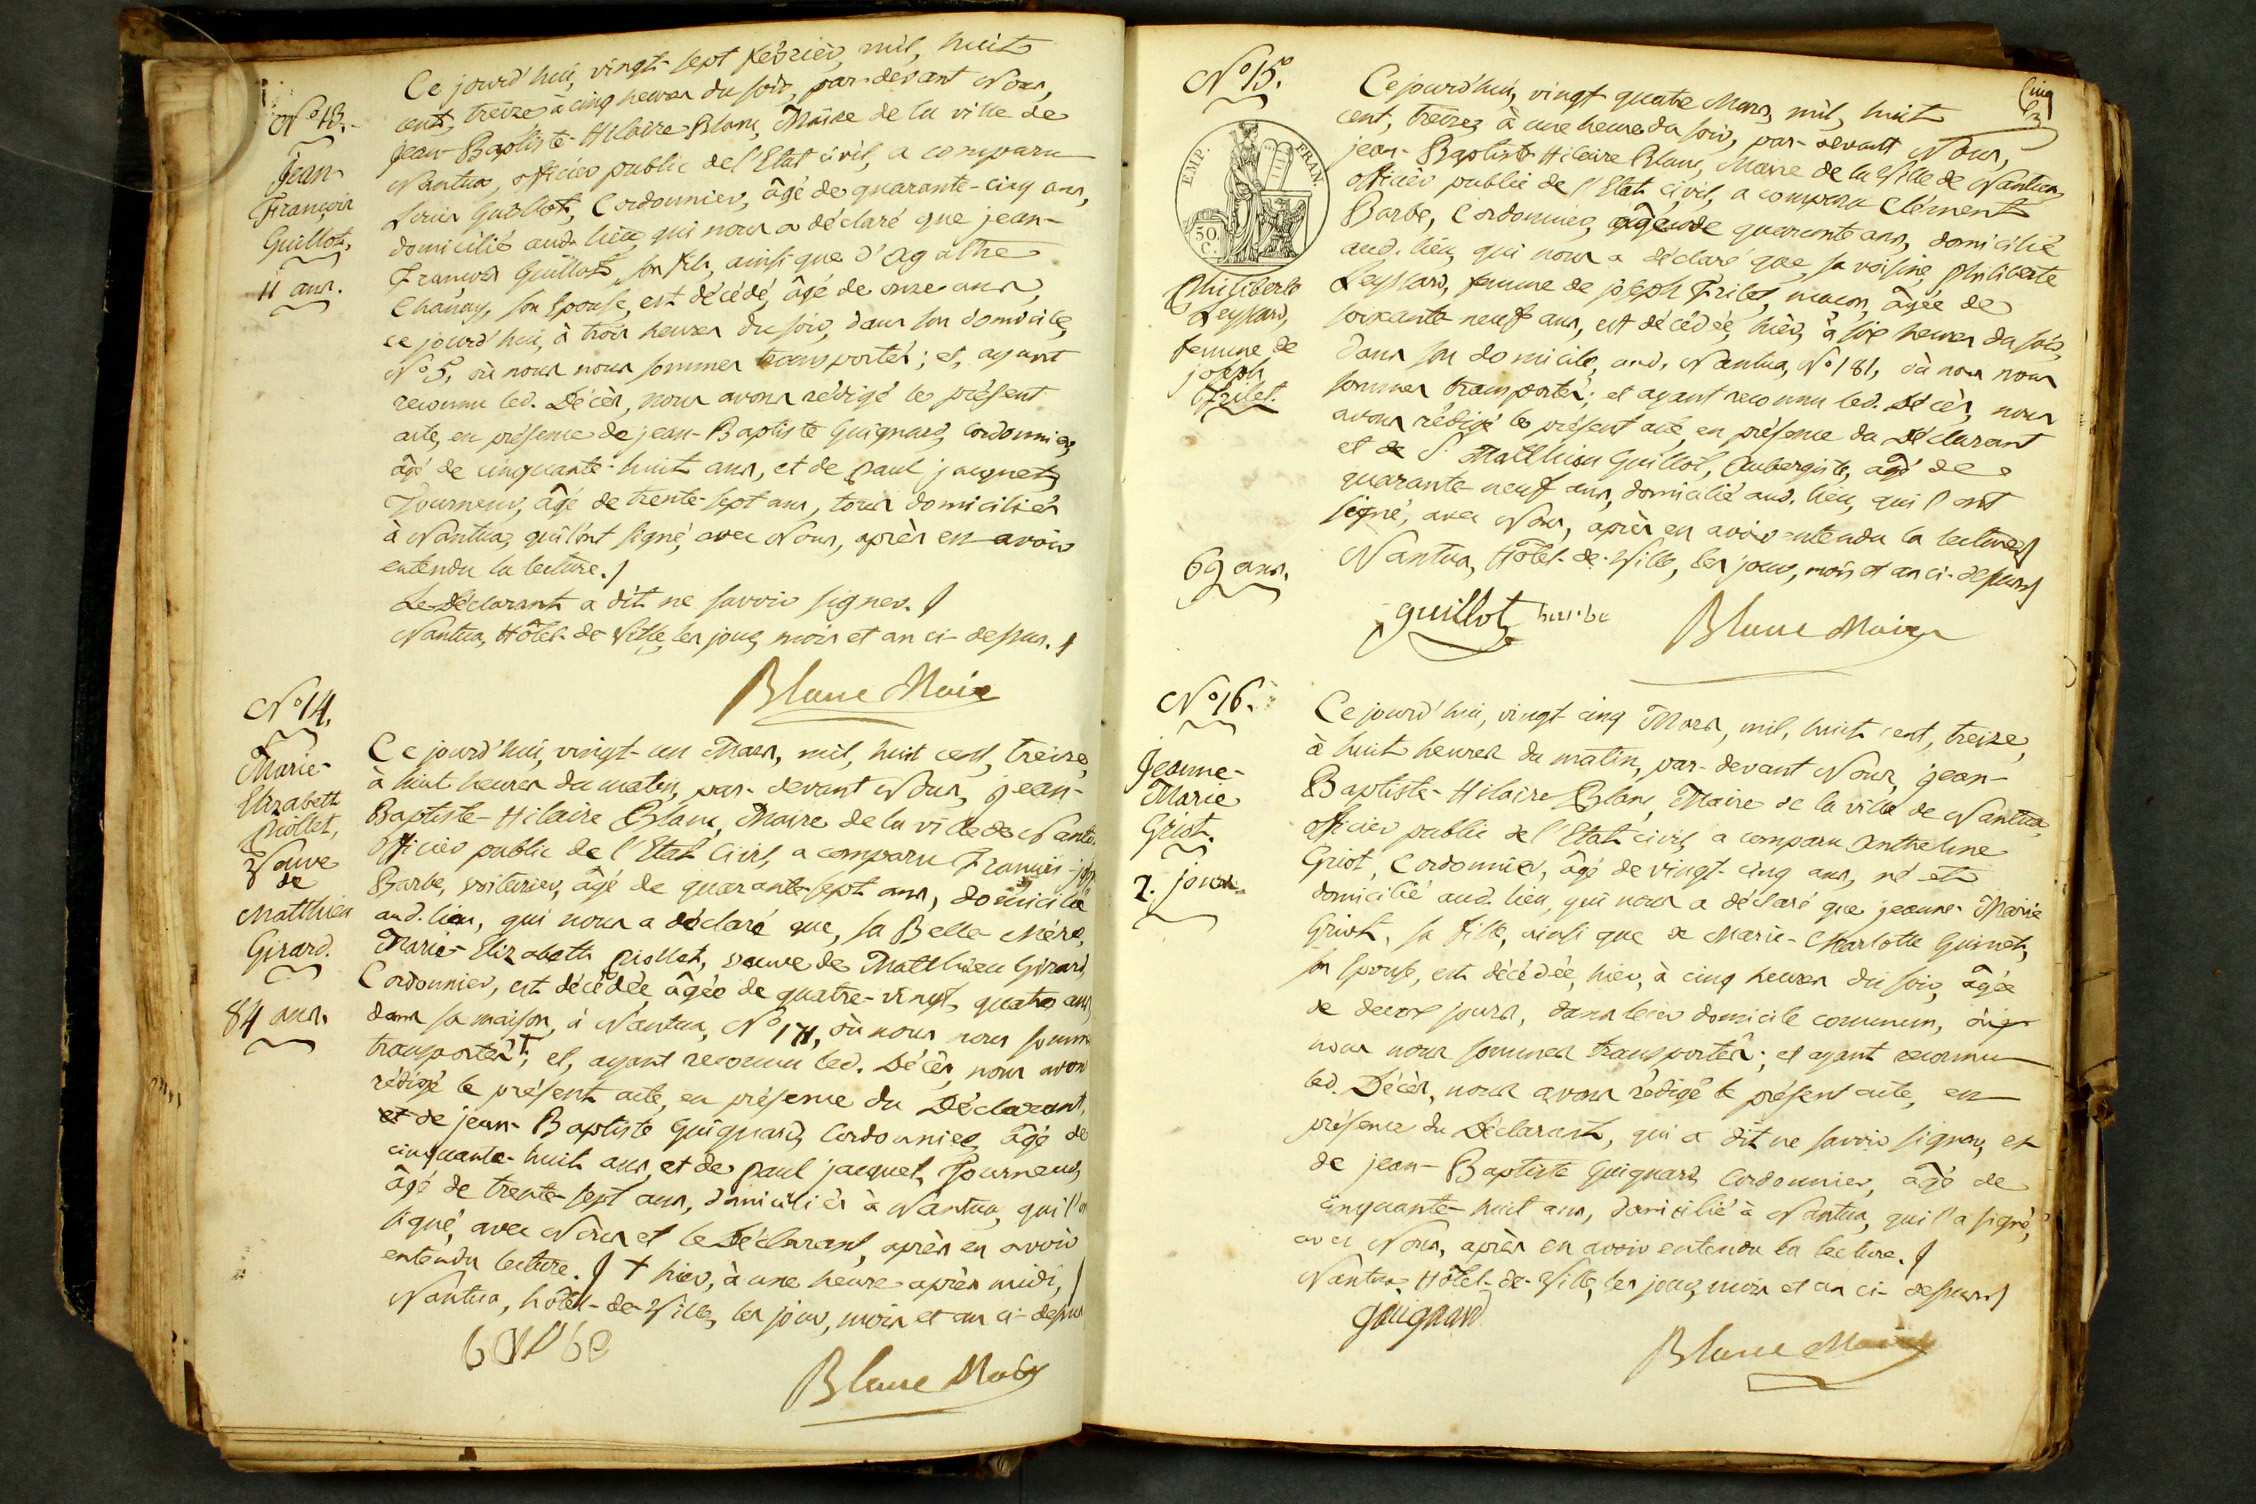 N.º 13.
Jean-
François
Guillot,
11 ans.
Ce jourd'hui, vingt-sept février, mil, huit
cent, treize à cinq heures du soir, par-devant Nous,
jean-Baptiste-Hilaire Blanc, Maire de la ville de
Nantua, officier public de l'Etat civil, a comparu
Louis Guillot, Cordonnier, âgé de quarante-cinq ans,
domicilié aud. lieu, qui nous a déclaré que jean-
François Guillot, son fils, ainsi que d'Agathe
Chanay, son Epouse, est décédé, âgé de onze ans,
ce jourd'hui, à trois heures du soir, dans son domicile,
N.º 5, où nous nous sommes transportés; et, ayant
reconnu led. Décès, nous avons rédigé le présent
acte, en présence de jean-Baptiste Guignard, Cordonnier,
âgé de cinquante-huit ans, et de paul jacquet,
Tourneur, âgé de trente-sept ans, tous domiciliés
à Nantua, qui l'ont signé, avec Nous, après en avoir
entendu la lecture./
Le Déclarant a dit ne savoir signer./
Nantua, Hôtel-de-Ville, les jour, mois et an ci-dessus./
Blanc Maire
N.º 14.
Marie-
Elizabeth
Piollet,
Veuve
de
Matthieu
Girard.
84 ans.
Ce jourd'hui, vingt-un Mars, mil, huit cent, treize,
à huit heures du matin, par-devant Nous, jean-
Baptiste-Hilaire Blanc, Maire de la ville de Nantua
officier public de l'Etat Civil, a comparu François-
Barbe, voiturier, âgé de quarante-sept ans, domicilié
aud. lieu, qui nous a déclaré que, sa Belle-Mère,
Marie-Elizabeth Piollet, veuve de Matthieu Girard,
Cordonnier, est décédée, âgée de quatre-vingt, quatre ans,
dans sa maison, à Nantua, N.º 171, où nous nous somm
transportés†; et, ayant reconnu led. Décès, nous avons
rédigé le présent acte, en présence du Déclarant,
et de jean-Baptiste Guignard, Cordonnier, âgé de
cinquante-huit ans, et de paul jacquet, Tourneur,
âgé de trente-sept ans, domiciliés à Nantua, qui l'o
signé, avec Nous et le Déclarant, après en avoir
entendu lecture./ † hier, à une heure après midi,/
Nantua, hôtel-de-Ville, les jour, mois et an ci-dessus
Blanc Maire
Cinq
N.º 15.
EMP. FRAN.
50 C.
Philiberte
Leyssard,
femme de
joseph
Frilet.
69 ans.
Ce jourd'hui, vingt quatre Mars, mil, huit
cent, treize, à une heure du soir, par-devant Nous,
jean-Baptiste Hilaire Blanc, Maire de la Ville de Nantua,
officier public de l'Etat Civil, a comparu Clément
Barbe, Cordonnier, âgé de quarante ans, domicilié
aud. lieu, qui nous a déclaré que, sa voisine, Philiberte
Leyssard, femme de joseph Frilet, maçon, âgée de
soixante neuf ans, est décédée, hier, à six heures du soir,
dans son domicile, aud. Nantua, N.º 181, où nous nous
sommes transportés; et ayant reconnu led. Décès, nous
avons rédigé le présent acte, en présence du Déclarant
et de S.r Matthieu Guillot, Aubergiste, âgé de
quarante neuf ans, domicilié aud. lieu, qui l'ont
signé, avec Nous, après en avoir entendu la lecture/
Nantua, Hôtel-de-Ville, les jour, mois et an ci-dessus/
guillot barbe
Blanc Maire
N.º 16.
Jeanne-
Marie
Griot.
2. jours.
Ce jourd'hui, vingt cinq Mars, mil, huit cent, treize,
à huit heures du matin, par-devant Nous, jean-
Baptiste-Hilaire Blanc, Maire de la ville de Nantua,
officier public de l'Etat civil, a comparu Anthelme
Griot, Cordonnier, âgé de vingt-cinq ans, né et
domicilié aud. lieu, qui nous a déclaré que jeanne-Marie
Griot, sa fille, ainsi que de Marie-Charlotte Guinet,
son Epouse, est décédée, hier, à cinq heures du soir, âgée
de deux jours, dans leur domicile commun, où
nous nous sommes transportés; et ayant reconnu
led. Décès, nous avons rédigé le présent acte, en
présence du Déclarant, qui a dit ne savoir signer, et
de jean-Baptiste Guignard, Cordonnier, âgé de
cinquante-huit ans, domicilié à Nantua, qui l'a signé,
avec Nous, après en avoir entendu la lecture./
Nantua, Hôtel-de-Ville, les jour, mois et an ci-dessus/
Guignard
Blanc Maire